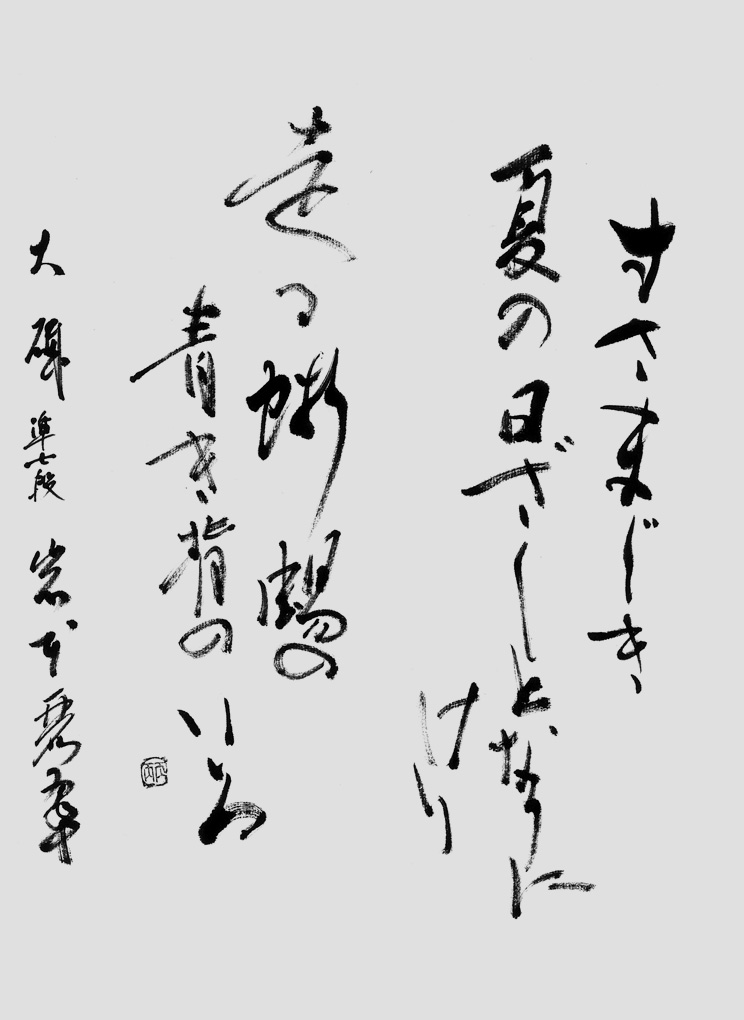 すさまじき
夏の日ざしとなりに
けり
走る蜥蜴の
青き背の
いろ
大 準七段 岩